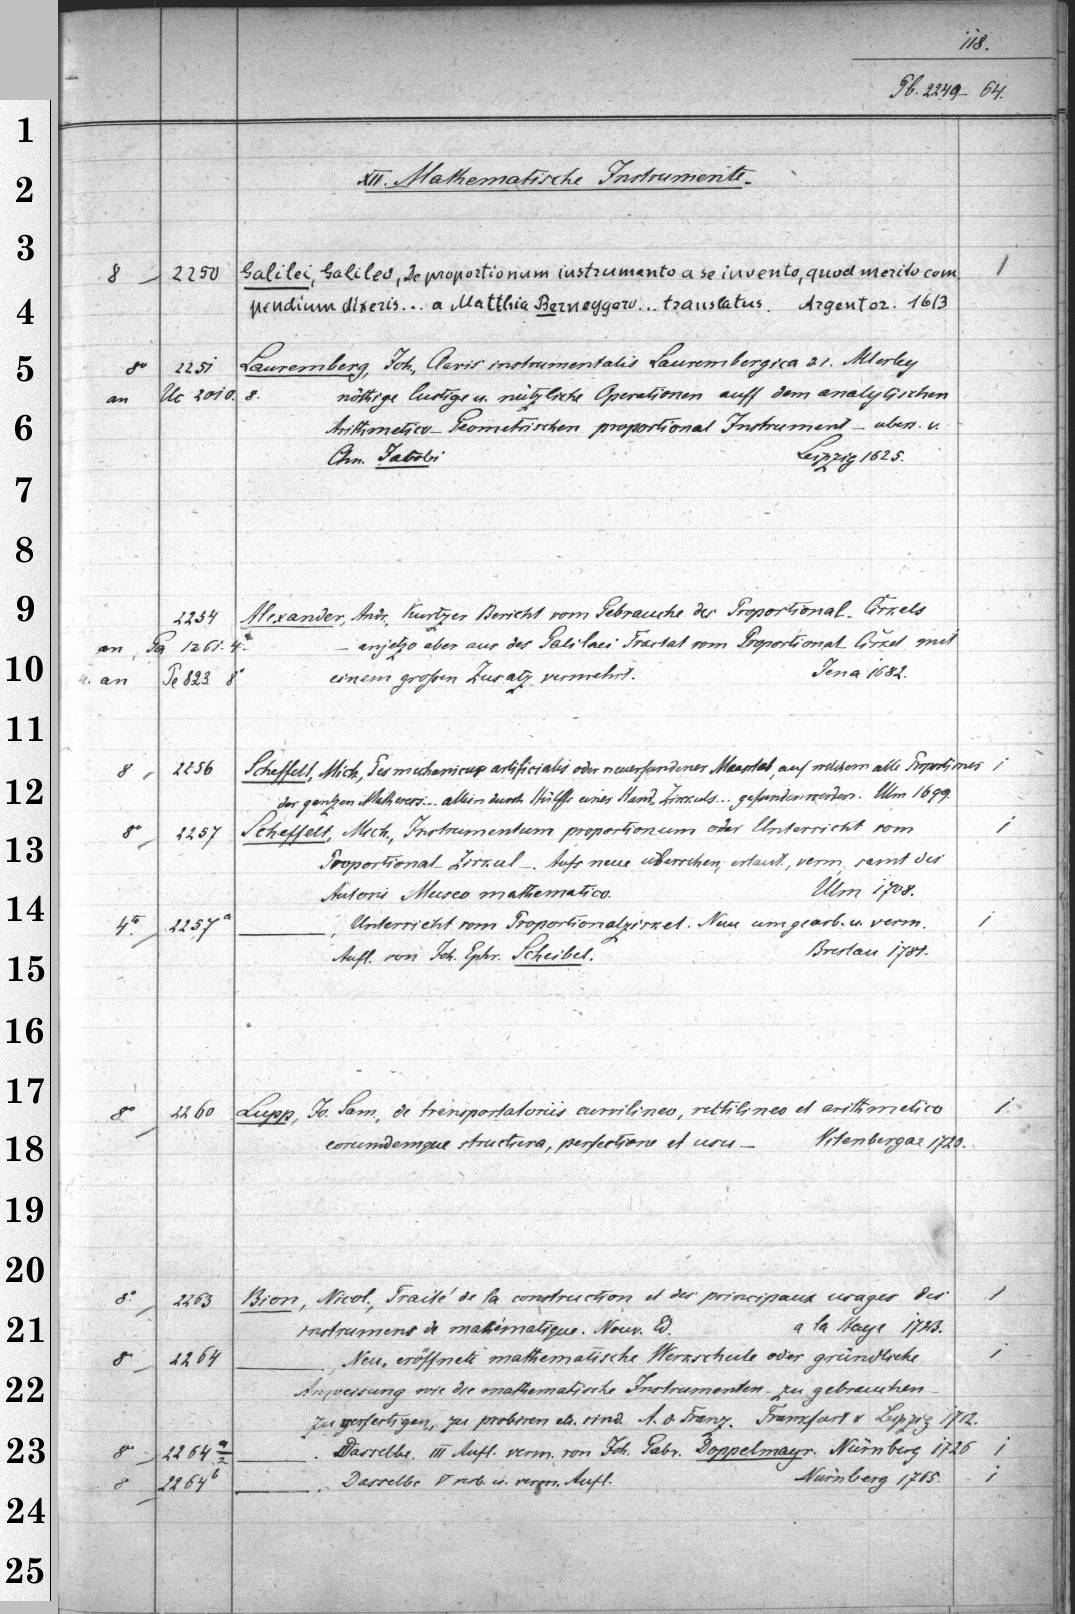 118.
Pb. 2249 - 64.
1
2
XII. Mathematische Instrumente.
3
8 2250 Galilei, Galileo, De proportionum instrumento a se invento, quod merito com
4
pendium dixeris... a Matthia Berneggero... translatus. Argentor. 1613
5
8° 2251 Lauremberg, Joh., Clavis instrumentalis Laurembergica 21. Allerley
an Uc 2010. 8. nöthige lustige u. nützliche Operationen auff dem analytischen
6
Arithmetico-Geometrischen proportional Instrument - übers. v.
Chn. Jacobi Leipzig 1625.
7
8
9
2254 Alexander, Andr. Kurtzer Bericht vom Gebrauche des Proportional-Cirkels
an Pa 1261. 4° - anjetzo aber aus des Galilaei Tractat vom Proportional-Cirkel mit
10
u. an Pe 823 8° einem grossen Zusatz vermehrt. Jena 1682.
11
8 2256 Scheffelt, Mich., Pes mechanicus artificialis oder neuerfundener Maasstab, auf welchem alle Proportiones
12
der gantzen Matheseos... allein durch Hülffe eines Hand-Zirkuls... gefunden werden. Ulm 1699.
8° 2257 Scheffelt, Mich., Instrumentum proportionum oder Unterricht vom
13
Proportional-Zirkul -. Aufs neue übersehen, erläut., verm. samt des
Autoris Museo mathematico. Ulm 1708.
14
4to 2257a , Unterricht vom Proportionalzirkel. Neu umgearb. u. verm.
15
Aufl. von Joh. Ephr. Scheibel. Breslau 1781.
16
17
8° 2260 Lupp, Jo. Sam., de transportatoriis curvilineo, rectilineo et arithmetico
18
eorumdemque structura, perfectione et usu - Vitenbergae 1720.
19
20
8° 2263 Bion, Nicol., Traité de la construction et des principaux usages des
21
instrumens de mathématique. Nouv. Ed. a la Haye 1723.
8 2264 Neu-eröffnete mathematische Werkschule oder gründliche
22
Anweisung wie die mathematische Instrumenten - zu gebrauchen -
zu verfertigen, zu probiren etc. sind. A. d. Franz. Frankfurt & Leipzig 1712.
23
8° 2264 a . Dasselbe. III Aufl. verm. von Joh. Gabr. Doppelmayr. Nürnberg 1726
8 2264b . Dasselbe V verb. u. verm. Aufl. Nürnberg 1765.
24
25